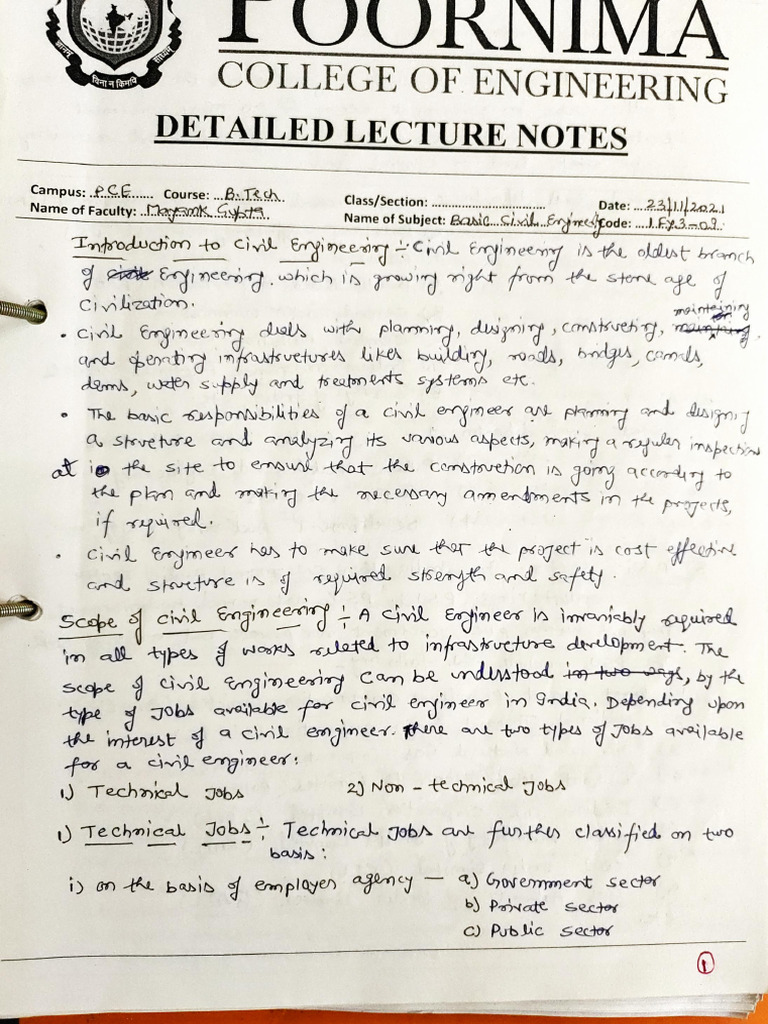 POORNIMA
COLLEGE OF ENGINEERING
विना न किमपि
DETAILED LECTURE NOTES
Campus: PCE Course: B.Tech Class/Section: Date: 23/11/2021
Name of Faculty: Mayank Gupta Name of Subject: Basic Civil Engineering Code: 1FY3-09
Introduction to Civil Engineering :- Civil Engineering is the oldest branch
of Engineering. which is growing right from the stone age of
Civilization.
• Civil Engineering deals with planning, designing, constructing, maintaining,
and operating infrastructures likes building, roads, bridges, canals,
dams, water supply and treatments systems etc.
• The basic responsibilities of a civil engineer are planning and designing
a structure and analyzing its various aspects, making a regular inspection
at the site to ensure that the construction is going according to
the plan and making the necessary amendments in the projects,
if required.
• Civil Engineer has to make sure that the project is cost effective
and structure is of required strength and safety.
Scope of Civil Engineering :- A Civil Engineer is invariably required
in all types of works related to infrastructure development. The
scope of Civil Engineering can be understood in two ways, by the
type of Jobs available for civil engineer in India. Depending upon
the interest of a civil engineer. There are two types of Jobs available
for a civil engineer:
1) Technical Jobs 2) Non-technical Jobs
1) Technical Jobs :- Technical Jobs are further classified on two
basis:
i) on the basis of employer agency — a) Government sector
b) Private sector
c) Public sector
1